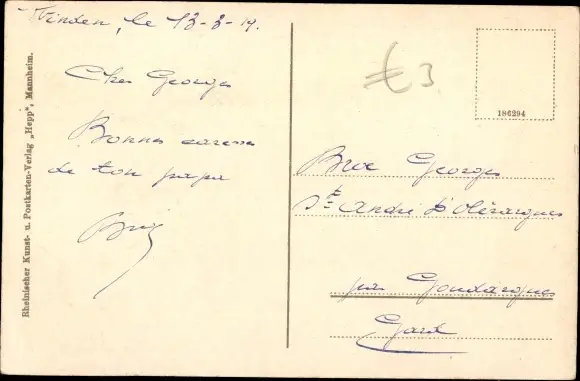 Winden, le 13-3-19.
Cher Georges
Bonnes caresses
de ton papa
Rheinischer Kunst- u. Postkarten-Verlag „Hepp", Mannheim.
€ 3
186294
Broc Georges
St André d'Olérargues
par Goudargues
Gard